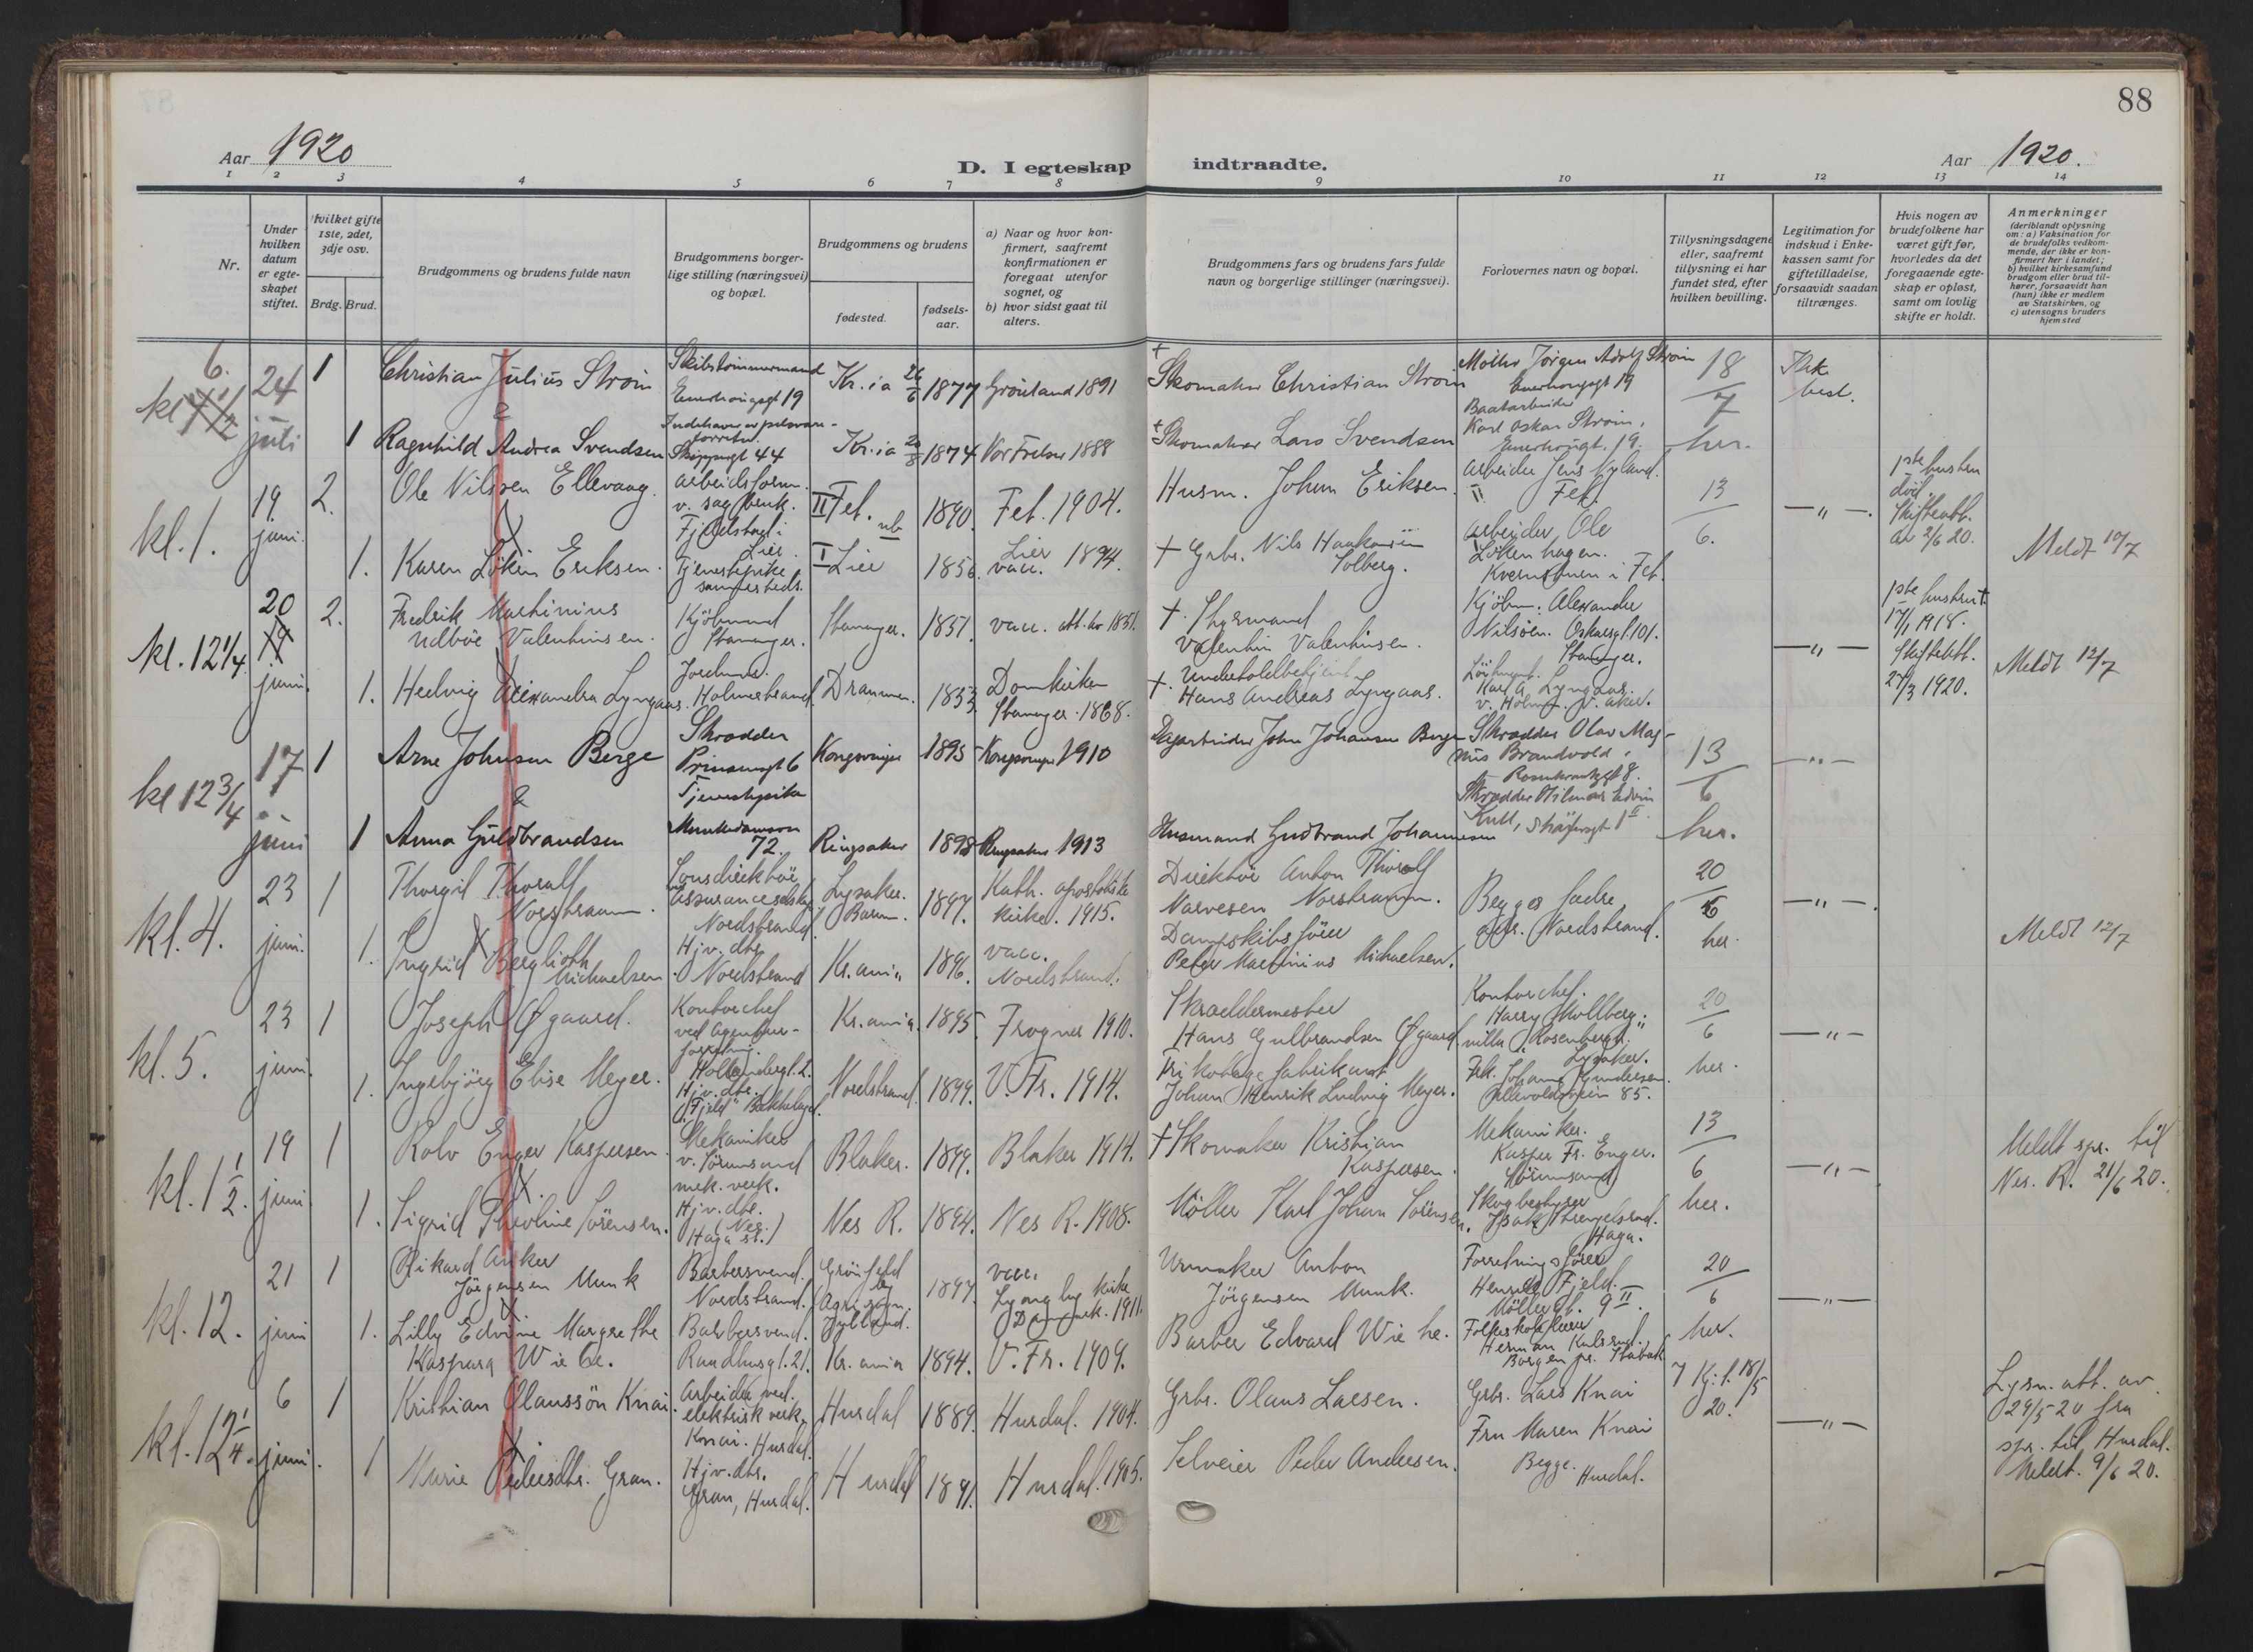 88
Aar 1920
D. I egteskap indtraadte.
Aar 1920.
1 2 3 4 5 6 7 8 9 10 11 12 13 14
Nr.
Under hvilken datum er egteskapet stiftet.
Hvilket gifte 1ste, 2det, 3dje osv.
Brdg. Brud.
Brudgommens og brudens fulde navn
Brudgommens borgerlige stilling (næringsvei) og bopæl.
Brudgommens og brudens
fødested.
fødselsaar.
a) Naar og hvor konfirmert, saafremt konfirmationen er foregaat utenfor sognet, og
b) hvor sidst gaat til alters.
Brudgommens fars og brudens fars fulde navn og borgerlige stillinger (næringsvei).
Forlovernes navn og bopæl.
Tillysningsdagene eller, saafremt tillysning ei har fundet sted, efter hvilken bevilling.
Legitimation for indskud i Enkekassen samt for giftetilladelse, forsaavidt saadan tiltrænges.
Hvis nogen av brudefolkene har været gift før, hvorledes da det foregaaende egteskap er opløst, samt om lovlig skifte er holdt.
Anmerkninger (deriblandt oplysning om: a) Vaksination for de brudefolks vedkommende, der ikke er konfirmert her i landet; b) hvilket kirkesamfund brudgom eller brud tilhører, forsaavidt han (hun) ikke er medlem av Statskirken, og c) utensogns bruders hjemsted
6.
24 juli
1 Christian Julius Strøm
Skibstømmermand
Enerhougsgt 19
Kr.ia 26/6 1877
Grønland 1891
† Skomaker Christian Strøm
Møller Jørgen Adolf Strøm
Enerhougsgt 19
18/7
her.
&
1 Ragnhild Andrea Svendsen
Skippergt 44
Kr.ia 1874
Vor Frelser 1888
† Skomaker Lars Svendsen
Karl Oskar Strøm,
Enerhougt. 19.
kl. 1.
19. juni.
2. Ole Nilssen Ellevaag.
arbeidsform.
v. sagbruk.
Lier.
II Fet. 1890.
Fet. 1904.
Husm. Johan Eriksen.
arbeider Jens Nyland.
Fet.
13/6.
-"-
1ste hustru
død.
Skifteatt.
av 2/6 20.
Meldt 10/7
1. Karen Løkin Eriksen.
Tjenestepike
sammesteds.
I Lier
Lier 1894.
vacc.
† Grbr. Nils Haakonsen
Solberg.
arbeider Ole
Løkenhagen.
i Fet.
kl. 12 1/4
20 juni.
2. Fredrik Mathinius
Udbøe Valentinsen.
Kjøbmand
Stavanger.
Stavanger. 1851.
vacc. att. av 1851.
† Styrmand
Valentin Valentinsen.
Kjøbm. Alexander
Nilsøen. Oskarsgt. 101.
Stavanger.
-"-
1ste hustru †
17/1 1918.
Skifteatt.
27/3 1920.
Meldt 12/7
1. Hedvig Alexandra Lyngaas.
Jordmor.
Holmestrand.
Drammen. 1853.
Domkirken
Stavanger. 1868.
† Underfoldbetjent
Hans Andreas Lyngaas.
Karl A. Lyngaas.
kl 12 3/4
17 juni
1 Arne Johnsen Berge
Skrædder
Prinsensgt 6
Kongsvinger 1895
Kongsvinger 1910
Dagarbeider John Johansen Berge
Skrædder Olav Magnus
Brandvold,
Rosenkrantzgt 8.
13/6
her.
-"-
&
1 Anna Guldbrandsen
Tjenestepike
Munkedamsvn
72.
Ringsaker 1898
Ringsaker 1913
Husmand Gudbrand Johannesen
Skrædder Hilmar Edvin
kl. 4.
23 juni.
1 Thorgil Thoralf
Norstraum.
Nordstrand.
Lysaker.
Bærum. 1897.
Kath. apostoliske
kirke. 1915.
Direktør Anton Thoralf
Narvesen Norstraum.
Begges fædre,
adr. Nordstrand.
20/6
her.
-"-
Meldt 12/7
1. Ingrid Berglioth
Michaelsen
Hjv. dtr.
Nordstrand
Kr.ania 1896.
vacc.
Nordstrand.
Dampskibsfører
Peter Martinius Michaelsen.
kl. 5.
23 juni.
1 Joseph Øgaard.
Kontorchef
ved Agentur-
forretning.
Hollendergt. 2.
Kr.ania. 1895.
Frogner 1910.
Skræddermester
Hans Gulbrandsen Øgaard.
Kontorchef.
Harry Mollberg;
villa "Rosenberg"
Lysaker.
20/6
her.
-"-
1. Ingebjørg Elise Meyer.
Hjv. dtr.
"Fjeld" Bekkelaget.
Nordstrand. 1899.
V. Fr. 1914.
Trikotagefabrikant
Johan Henrik Ludvig Meyer.
Frk. Johanne Gundersen.
Ullevoldsveien 85.
kl. 1 1/2.
19 juni.
1 Rolv Enger Kaspersen.
Mekaniker
v. Sørumsand
mek. verk.
Blaker. 1899.
Blaker 1914.
† Skomaker Kristian
Kaspersen.
Mekaniker.
Kasper Fr. Enger.
Sørumsand
13/6
her.
-"-
Meldt spr. til
Nes. R. 21/6 20.
1. Sigrid Theoline Sørensen.
Hjv. dtr.
Haga st. (Nes.)
Nes R. 1894.
Nes R. 1908.
Møller Karl Johan Sørensen.
Skogbestyrer
Haga.
kl. 12.
21 juni
1 Rikard Anker
Jørgensen Munk
Barbersvend.
Nordstrand.
Jylland. 1897.
vacc.
Lyngby kirke
Danmark. 1911.
Urmaker Anton
Jørgensen Munk.
Forretningsfører
Henrik Fjeld.
Møllergt. 9 II.
20/6
her.
-"-
1. Lilly Edvine Margrethe
Kaspara Wiebe.
Barbersvend.
Raadhusgt. 21.
Kr.ania 1894.
V. Fr. 1909.
Barber Edvard Wiebe.
Folkeskolelærer
Herman Karlsrud.
kl. 12 1/4.
6 juni.
1 Kristian Olaussøn Knai.
Arbeider ved.
elektrisk verk.
Knai. Hurdal.
Hurdal 1889.
Hurdal. 1904.
Grbr. Olaus Larsen.
Grbr. Lars Knai
18/5 20.
-"-
Lysn. att. av
29/5 20 fra
spr. til Hurdal.
Meldt. 9/6 20.
1 Marie Pedersdtr. Gran.
Hjv. dtr.
Gran, Hurdal.
Hurdal 1891.
Hurdal. 1905.
Selveier Peder Andersen.
Fru Maren Knai
Begge. Hurdal.